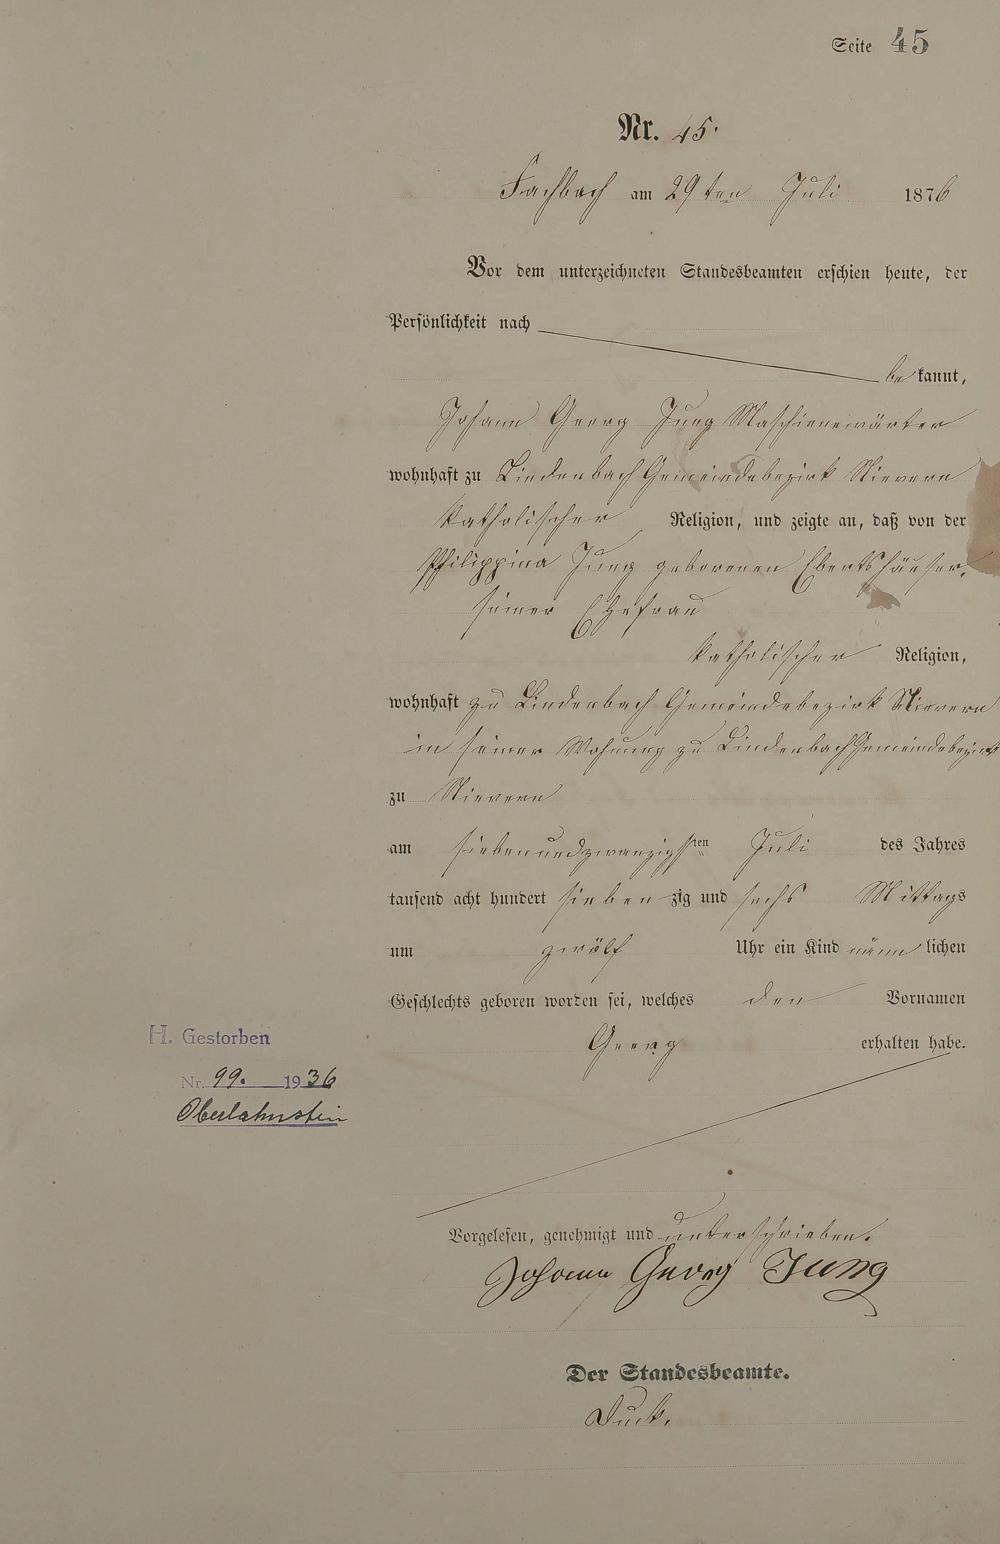 Seite 45
Nr. 45.
Fachbach am 29ten Juli 1876
Vor dem unterzeichneten Standesbeamten erschien heute, der
Persönlichkeit nach
bekannt,
Johann Georg Jung Maschienewärter
wohnhaft zu Lindenbach Gemeindebezirk Nievern
katholischer Religion, und zeigte an, daß von der
Philippina Jung geborenen Ebertshäuser,
seiner Ehefrau
katholischer Religion,
wohnhaft zu Lindenbach Gemeindebezirk Nievern
in seiner Wohnung zu Lindenbach Gemeindebezirk
zu Nievern
am siebenundzwanzigsten Juli des Jahres
tausend acht hundert siebenzig und sechs Mittags
um zwölf Uhr ein Kind männlichen
Geschlechts geboren worden sei, welches den Vornamen
Georg erhalten habe.
H. Gestorben
Nr. 99. 1936
Oberlahnstein
Vorgelesen, genehmigt und unterschrieben.
Johann Georg Jung
Der Standesbeamte.